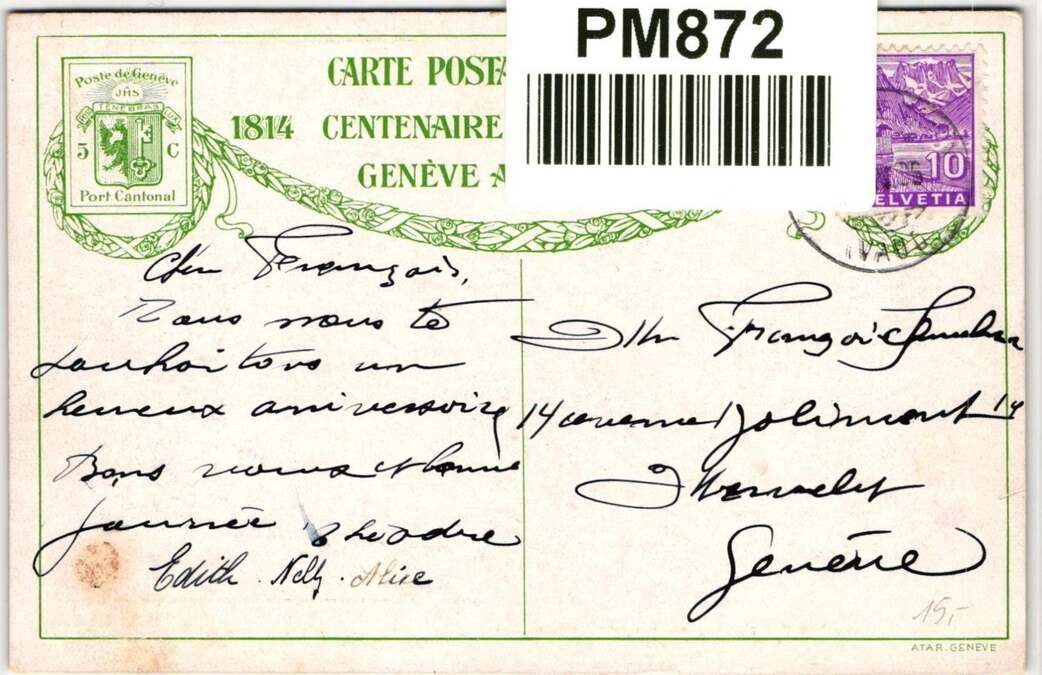 PM872
Poste de Genève
JHS
POST TENEBRAS LUX
5 C
Port Cantonal
CARTE POSTA
1814 CENTENAIRE
GENÈVE A
10
HELVETIA
Cher François,
Nous nous te
souhaitons un
heureux aniversaire
Bons voeux et bonne
journée Théodre
Edith. Nelly. Alice
Mr François
14 avenue Jolimont 14
Genève
15,-
ATAR. GENÈVE